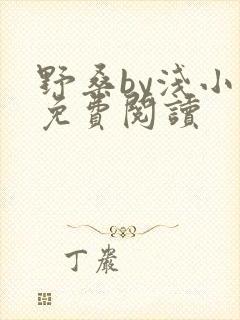 野桑by浅小
免費閱讀
丁嚴